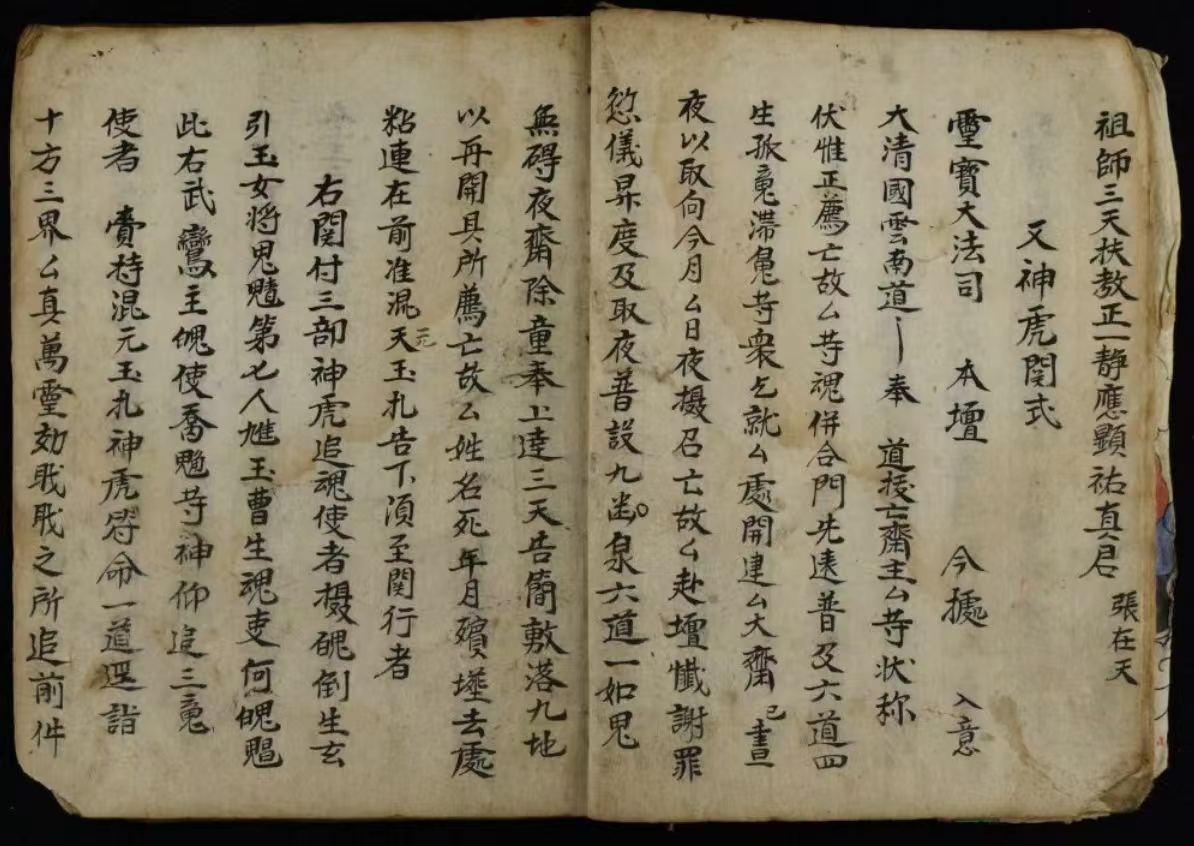 祖師三天扶教正一靜應顯祐真君 張在天
又神虎関式
靈寶大法司 本壇 今據 入意
大清國雲南道丨奉 道投亡齋主厶等状称
伏惟正薦亡故厶等魂併合門先遠普及六道四
生孤魂滯魄等衆乞就厶處開建厶大齋 已晝
夜以取向今月厶日夜攝召亡故厶赴壇懺謝罪
愆儀昇度及取夜普設九幽泉六道一如鬼
無碍夜齋除童奉上達三天告簡敷落九地
以再開具所薦亡故厶姓名死年月殯塟去處
粘連在前准混天元玉札告下須至関行者
右関付三部神虎追魂使者攝魂倒生玄
引玉女將 第七人 玉曹生魂吏何
此右武鸞主 使喬 等神仰追三魂
使者 賫持混元玉札神虎符命一道逕詣
十方三界厶真萬靈効職職之所追前件